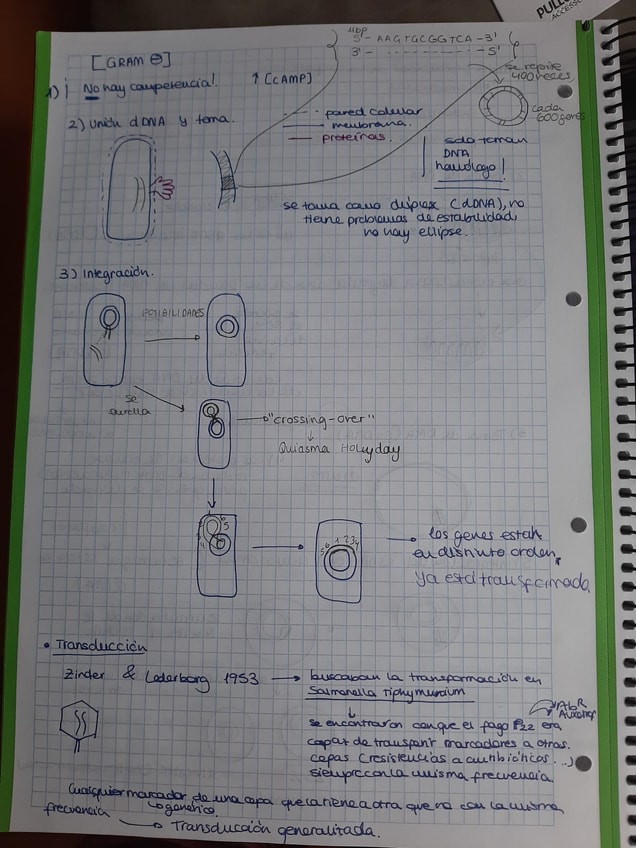 PULL
ACCESSO
11bp
5'- AAGTGCGGTCA -3'
3'- - - - - - - - -5'
[GRAM ⊖]
se repite
400 veces,
cada
600 genes
1) ¡No hay competencia! ↑[cAMP]
2) Unión dDNA y toma.
pared celular
membrana.
proteínas.
solo toman
DNA
homólogo!
se toma como dúplex (dDNA), no
tiene problemas de estabilidad,
no hay ellipse.
3) Integración.
POSIBILIDADES
se
"crossing-over"
Quiasma Holleyday
los genes están
en distinto orden,
ya está transformada
• Transducción
Zinder & Lederberg 1953 → buscaban la transformación en
Salmonella tiphymurium
AbR
se encontraron con que el fago P22 era
capaz de transmitir marcadores a otras.
cepas (resistencias a antibióticos...)
siempre con la misma frecuencia
Cualquier marcador de una cepa que la tiene a otra que no con la misma
genético.
frecuencia → Transducción generalizada.